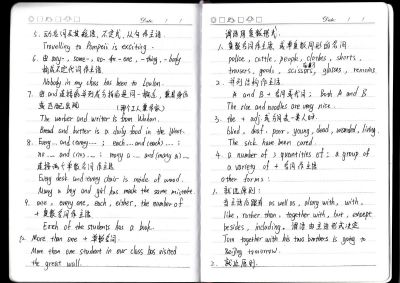 Date / /
5. 动名词
不定式, 从句作主语.
Travelling to Pompeii is exciting.
6. 由 any-, some-, no- -one, -thing, -body
构成不定代词作主语.
Nobody in my class has been to London.
7. 由 and 连接的并列
The worker and writer is from Wuhan.
Bread and butter is a daily food in the West.
8. Every... and (every)...; each... and (each)...;
no... and (no)...; many a... and (many a)...
名词作主语
Every desk and every chair is made of wood.
Many a boy and girl has made the same mistake.
9. one, every one, each, either, the number of
+ 复数名词作主语
Each of the students has a book.
10. More than one + 单数名词
More than one student in our class has visited
the great wall.
Date / /
谓语用复数形式.
1. 复数名词作主语
police, cattle, people, clothes, shorts,
trousers, goods, scissors, glasses, remains
2. 并列结构作主语
A and B + 名词; both A and B
The rice and noodles are very nice.
3. the + adj. 表示某一类人时.
blind, deaf, poor, young, dead, wounded, living
The sick have been cured.
4. a number of; quantities of; a group of
a variety of + 名词作主语
other forms:
1. 就远原则:
当主语后跟有 as well as, along with, with,
like, rather than, together with, but, except
besides, including, 谓语由主语形式决定
Tom together with his two brothers is going to
Beijing tomorrow.
2. 就近原则.